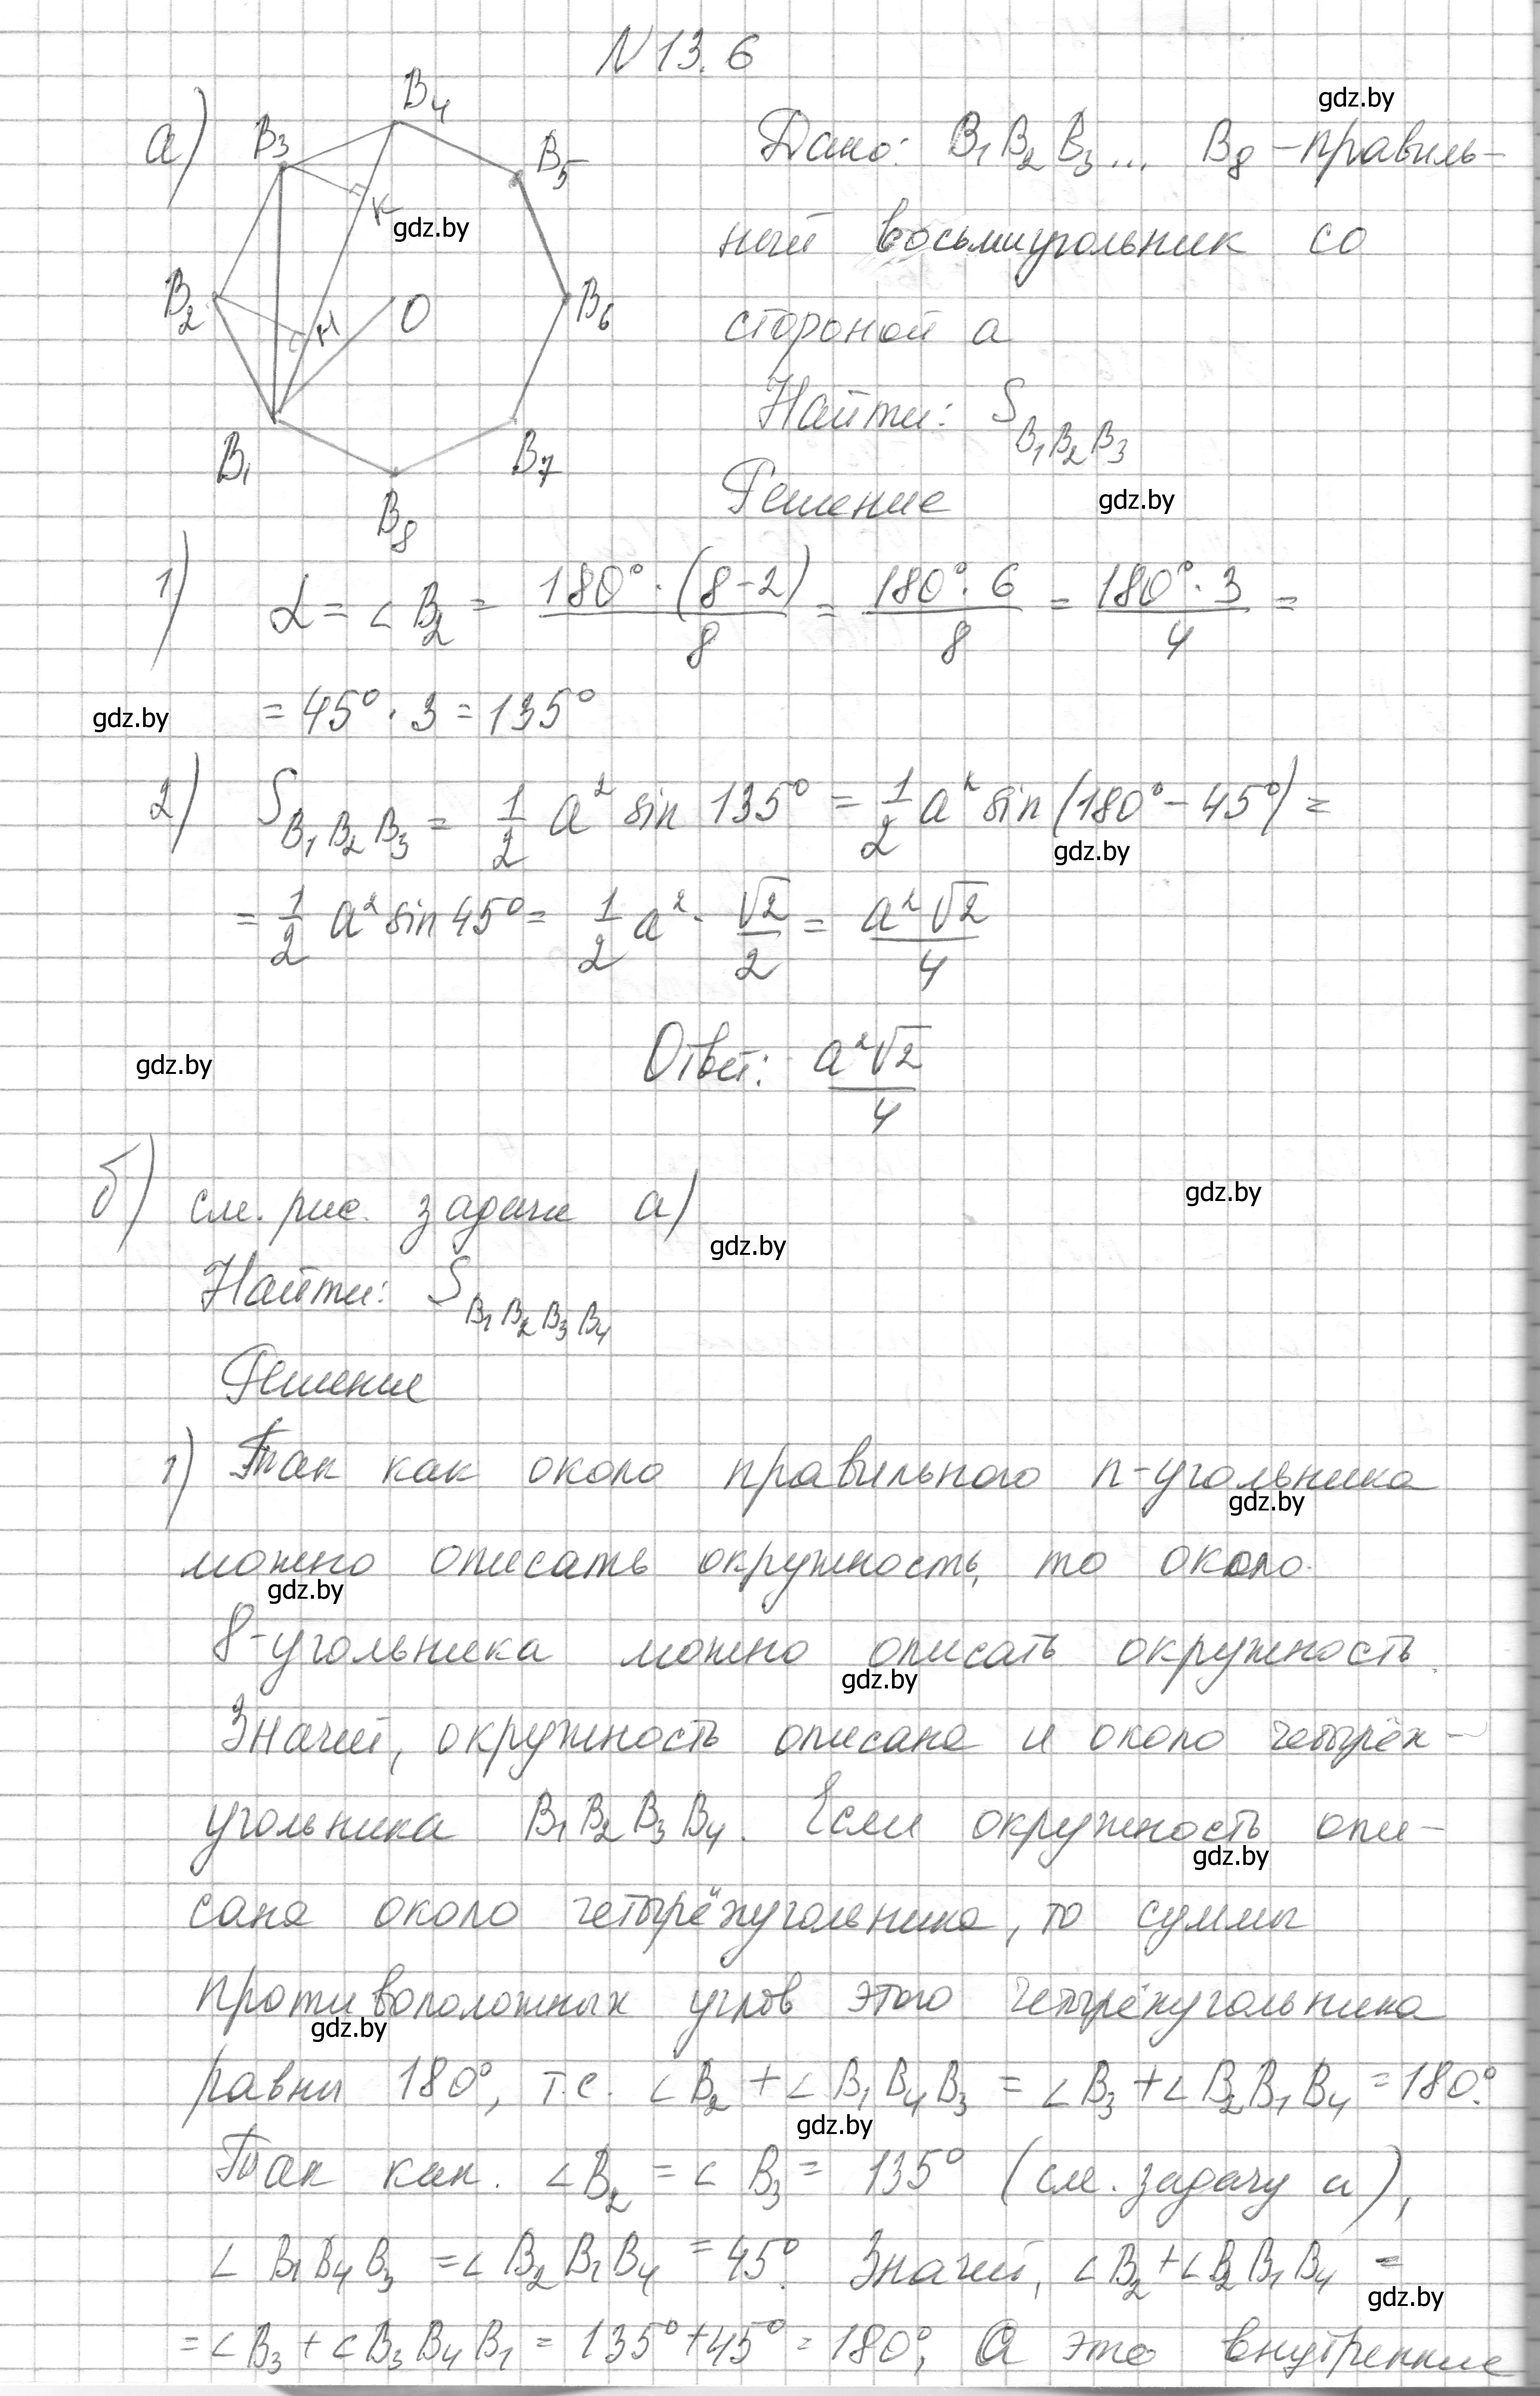 N 13.6
а) B₄ B₃ B₅ K B₂ H O B₆ B₁ B₇ B₈
gdz.by
Дано: B₁ B₂ B₃ ... B₈ - правиль-
gdz.by
ный восьмиугольник со
стороной a
Найти: S B₁B₂B₃
Решение gdz.by
1) α = ∠B₂ = 180°·(8-2)/8 = 180°·6/8 = 180°·3/4 =
gdz.by = 45°·3 = 135°
2) S B₁B₂B₃ = 1/2 a² sin 135° = 1/2 a² sin(180°-45°) =
gdz.by
= 1/2 a² sin 45° = 1/2 a² · √2/2 = a²√2/4
gdz.by Ответ: a²√2/4
б) см. рис. задачи а) gdz.by
gdz.by
Найти: S B₁B₂B₃B₄
Решение
1) Так как около правильного n-угольника
gdz.by
можно описать окружность, то около
gdz.by
8-угольника можно описать окружность.
gdz.by
Значит, окружность описана и около четырёх-
угольника B₁B₂B₃B₄. Если окружность опи-
gdz.by
сана около четырёхугольника, то суммы
противоположных углов этого четырёхугольника
gdz.by
равны 180°, т.е. ∠B₂ + ∠B₁B₄B₃ = ∠B₃ + ∠B₂B₁B₄ = 180°.
gdz.by
Так как. ∠B₂ = ∠B₃ = 135° (см. задачу а),
∠B₁B₄B₃ = ∠B₂B₁B₄ = 45°. Значит, ∠B₂ + ∠B₂B₁B₄ =
gdz.by
= ∠B₃ + ∠B₃B₄B₁ = 135° + 45° = 180°, А это внутренние